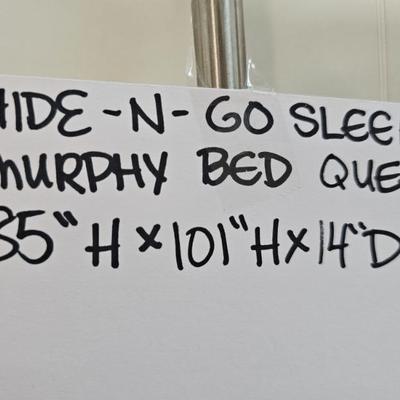 HIDE-N-GO SLEE
MURPHY BED QUE
85" H x 101" H x 14" D